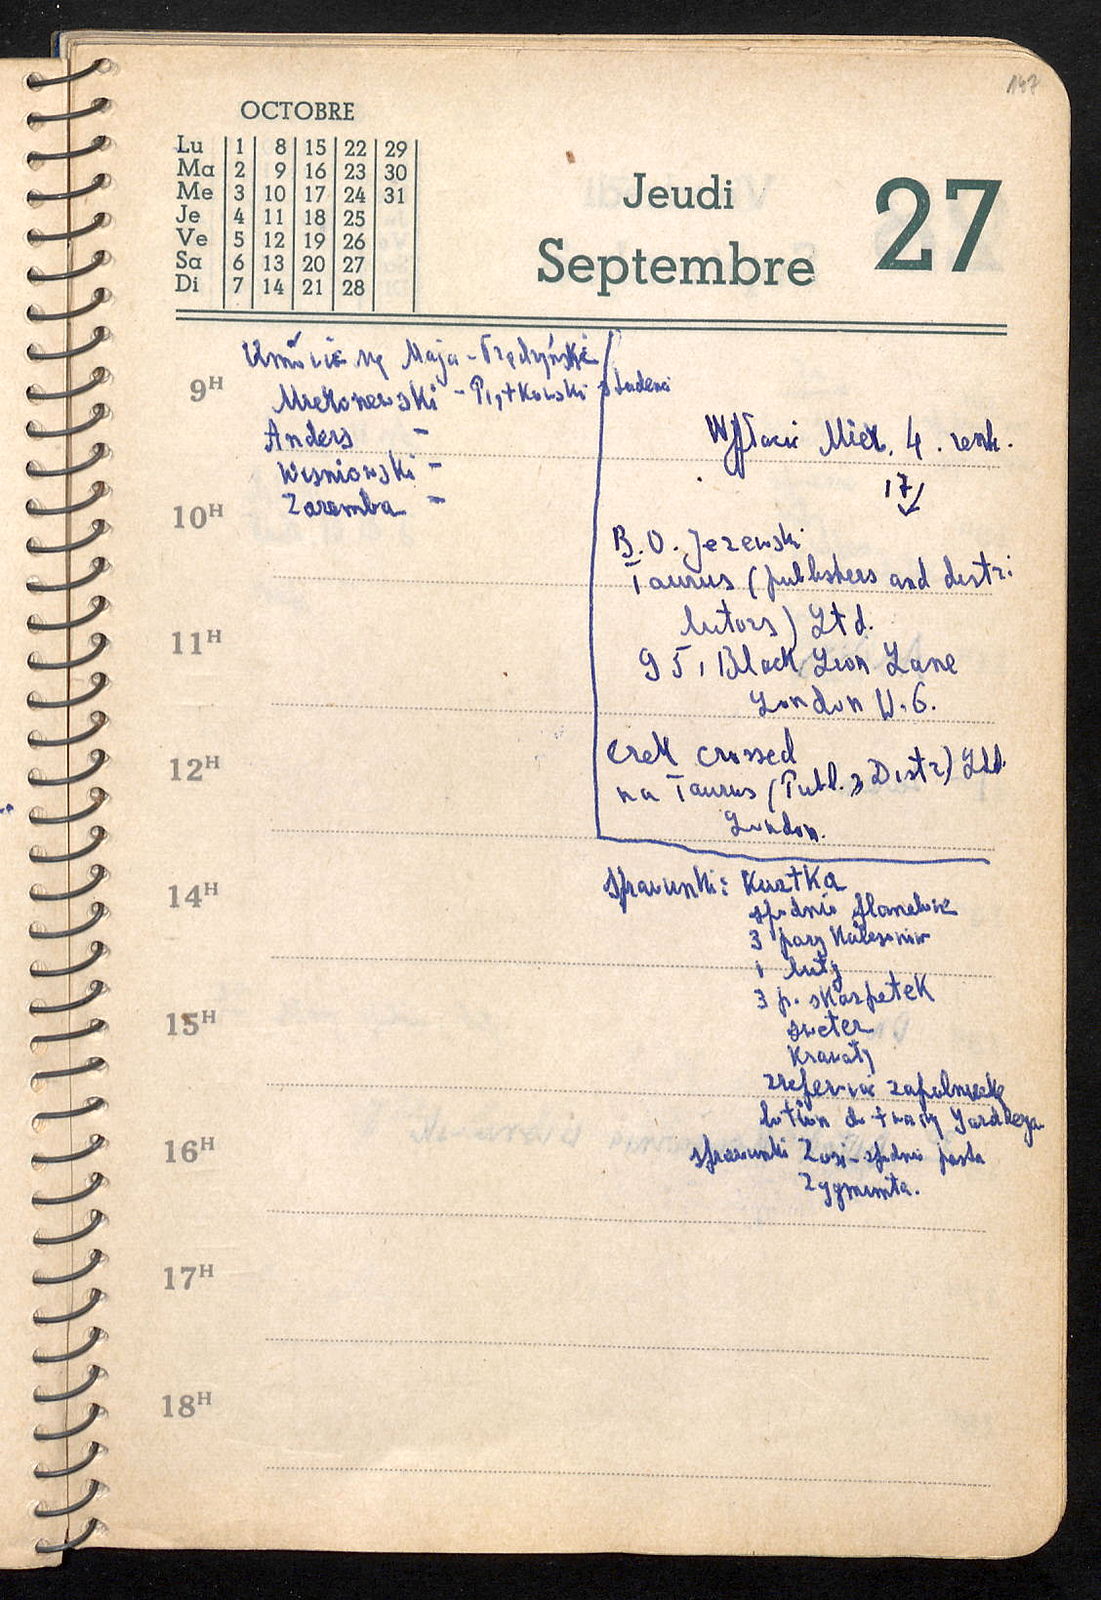 147
OCTOBRE
Lu 1 8 15 22 29
Ma 2 9 16 23 30
Me 3 10 17 24 31
Je 4 11 18 25
Ve 5 12 19 26
Sa 6 13 20 27
Di 7 14 21 28
Jeudi
Septembre
27
9H
10H
11H
12H
14H
15H
16H
17H
18H
Umówić się Maja -
- Piątkowski studenci
Anders -
Wiśniowski -
Zaremba -
Wypłacić 4.
17/
B. O. Jeżewski
Taurus (publishers and distri
butors) Ltd.
95, Black Lion Lane
London W.6.
crossed
na Taurus (Publ. & Distr) Ltd.
London.
Sprawunki: Kurtka
spodnie flanelowe
3 pary Kalesonów
1 buty
3 p. skarpetek
sweter
Krawaty
zapalniczkę
lotion do twarzy Yardleya
sprawunki Zosi - spodnie pasta
Zygmunta.